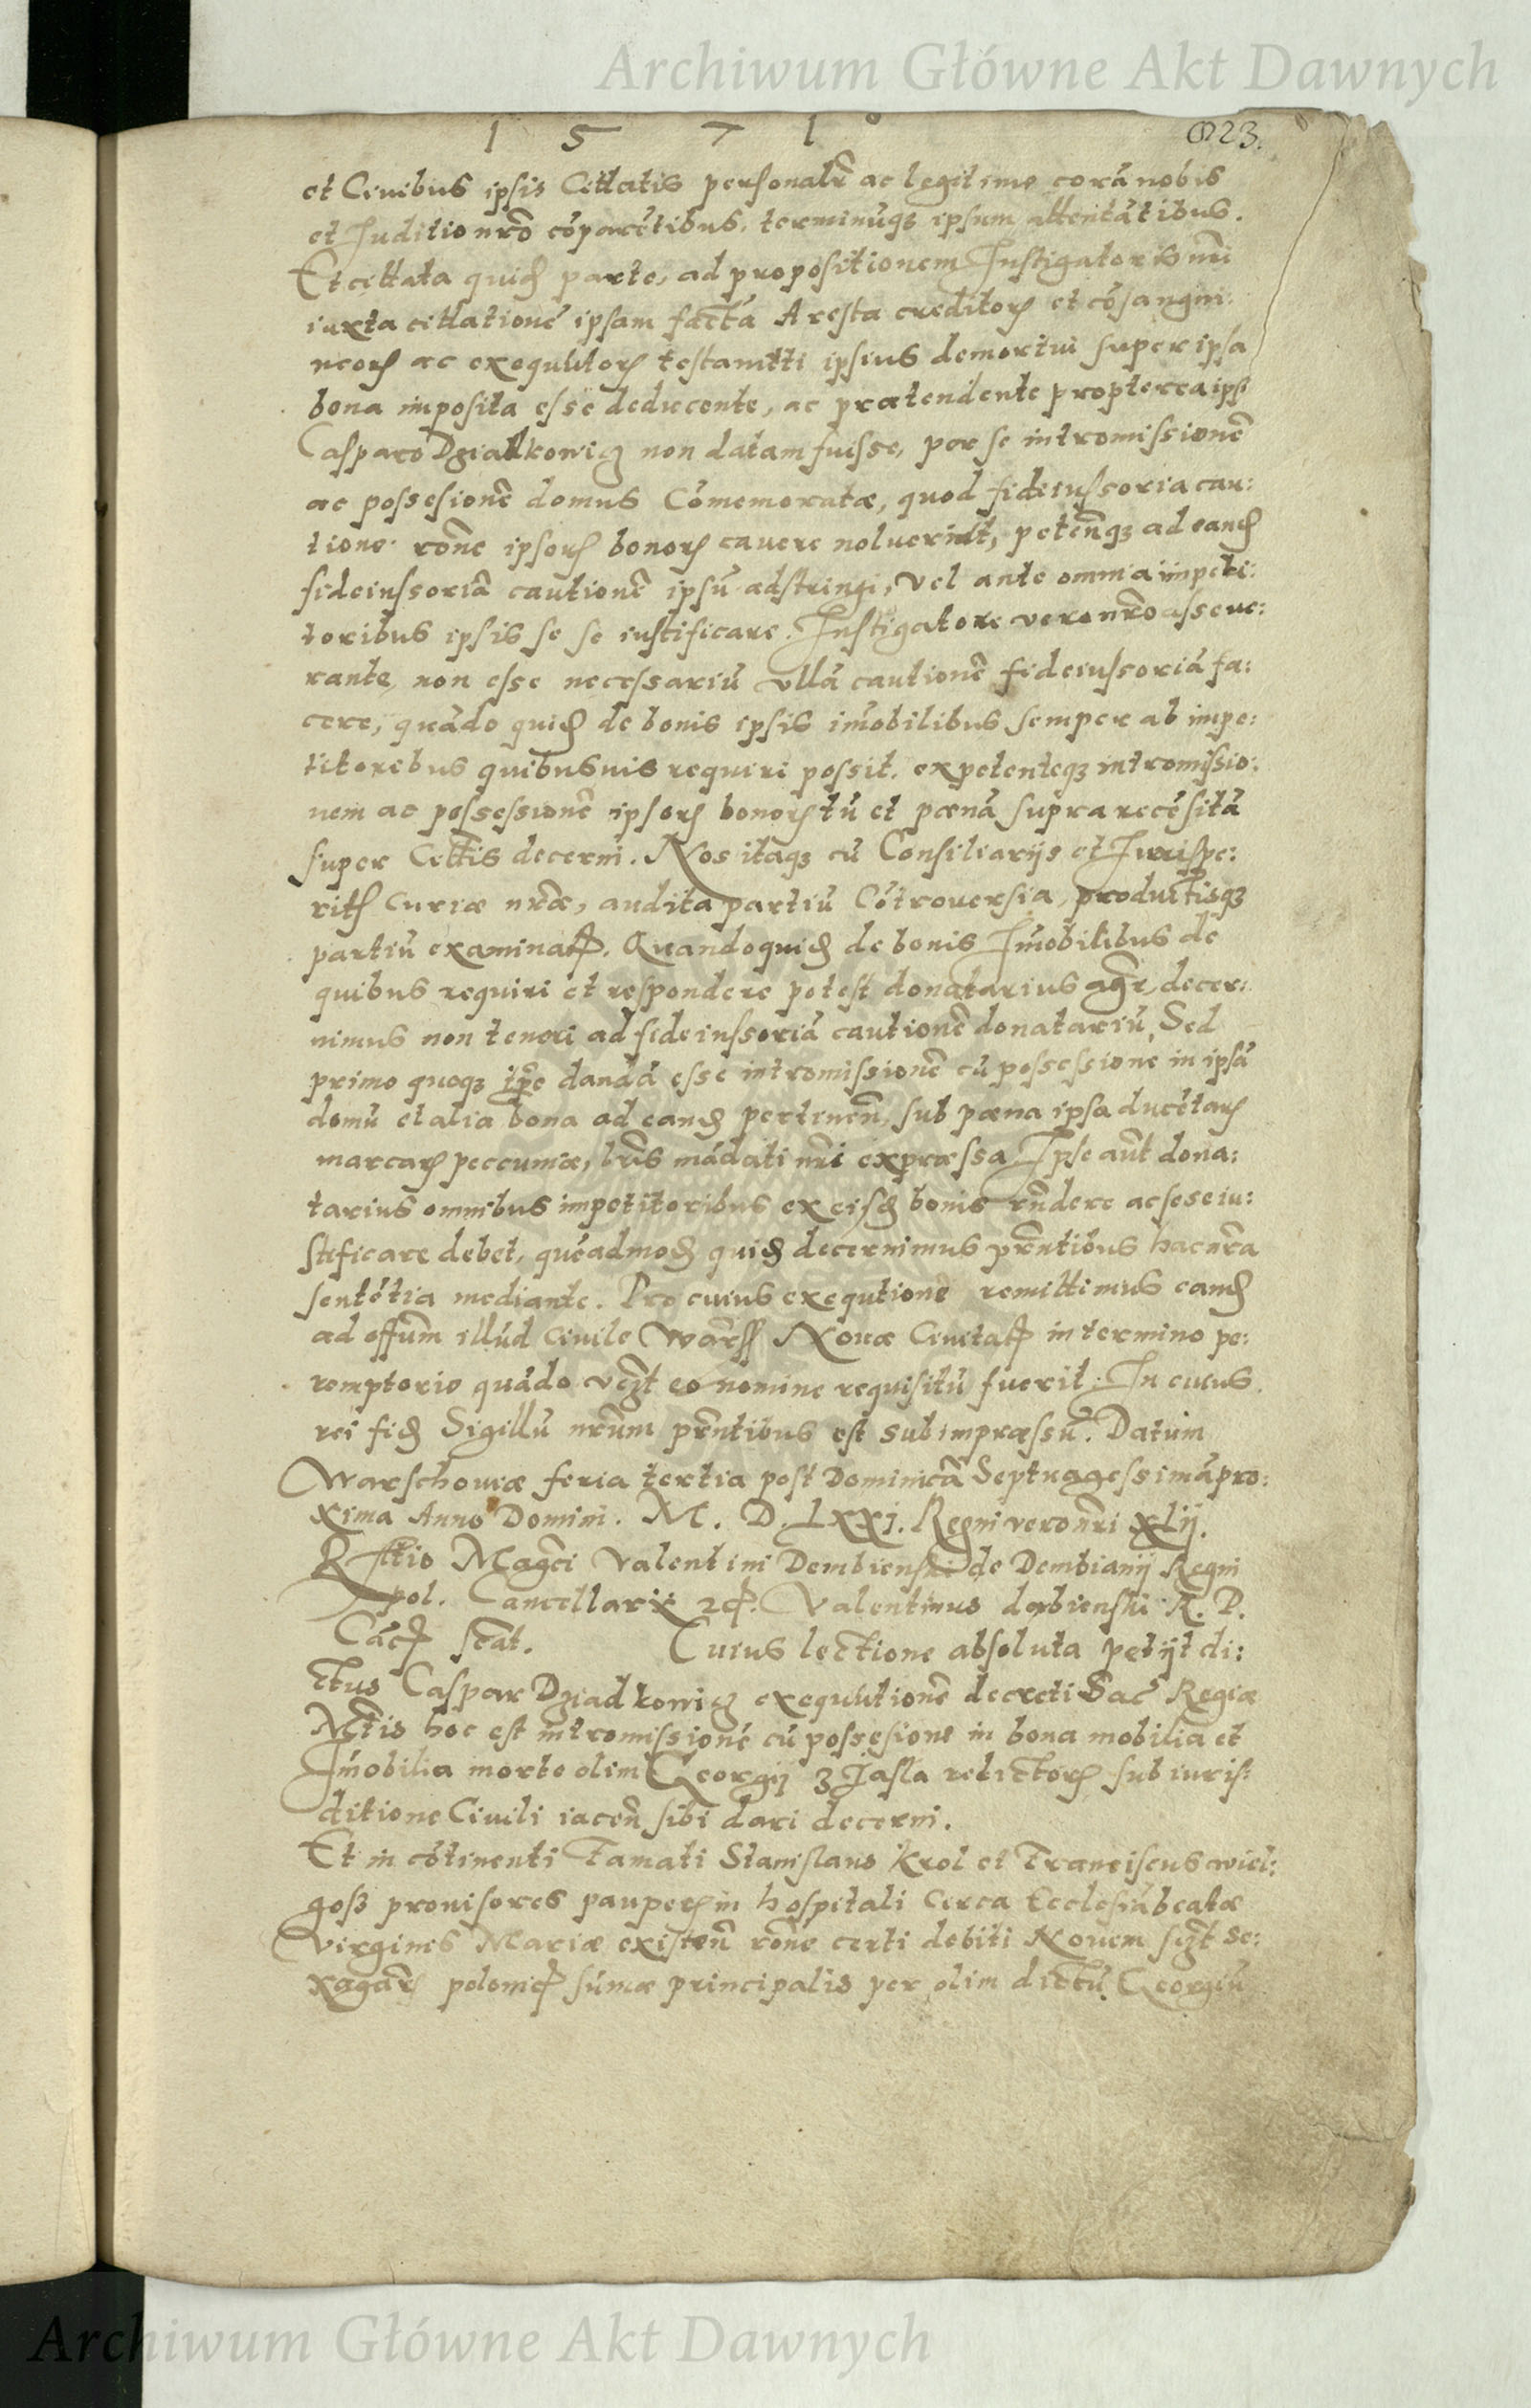 Archiwum Główne Akt Dawnych
1 5 7 1
23.
et Ciuibus ipsis Cittatis personalr̃ ac legitime corã nobis
et Juditio nr̃o cõparẽtibus, terminũq; ipsum attentãtibus.
Et cittata quid̃ parte, ad propositionem Instigatoris nr̃i
iuxta cittationẽ ipsam factã Aresta creditoꝝ et cõsangui:
neoꝝ ac exequutoꝝ testamẽti ipsius demortui super ipsa
bona imposita esse deducente, ac prætendente propterea ipsi
Casparo Dziadkowicz non datam fuisse, per se intromissionẽ
ac possesionẽ domus Cõmemoratæ, quod fideiussoria cau:
tione rõne ipsoꝝ bonoꝝ cavere noluerint, petenq; ad eand̃
fideiussoriã cautionẽ ipsũ adstringi, vel ante omnia impeti:
toribus ipsis se se iustificare. Instigatore vero nr̃o asseue:
rante, non esse necessariũ ullã cautionẽ fideiussoriã fa:
cere, quãdo quid̃ de bonis ipsis im̃obilibus semper ab impe:
titoribus quibusuis requiri possit. expetenteq; intromissio:
nem ac possessionẽ ipsoꝝ bonoꝝ tũ et pænã supra recẽsitã
super Cittis decerni. Nos itaq; cũ Consiliarijs et Jurispe:
ritis Curiæ nr̃æ, audita partiũ Cõtrouersia, productisq;
partiũ examinatis. Quandoquid̃ de bonis Im̃obilibus de
quibus requiri et respondere potest donatarius agr̃, decer:
nimus non teneri ad fideiussoriã cautionẽ donatariũ, Sed
primo quoq; tpr̃e dandã esse intromissionẽ cũ possessione in ipsã
domũ et alia bona ad eand̃ pertinen̄, sub pæna ipsa ducẽtaꝝ
marcaꝝ peccuniæ, lr̃is mãdati nr̃i expræssa. Ipse aũt dona:
tarius omnibus impetitoribus ex eisd̃ bonis rñdere ac sese iu:
stificare debet, quẽadmod̃ quid̃ decernimus pr̃ntibus hac nr̃a
sentẽtia mediante. Pro cuius exequtione remittimus eand̃
ad off̃um illud Ciuile Warss̃ Nouæ Ciuitatis in termino pe:
remptorio quãdo vigr̃t eo nomine requisitũ fuerit. In cuius
rei fid̃ Sigillũ nr̃um pr̃ntibus est subimpræssũ. Datum
Warschouiæ feria tertia post Dominicã Septuagessimã pro:
xima Anno Domini. M. D. Lxxj. Regni vero nr̃i xlij.
Rl̃tio Mag̃ci Valentini Dembienski de Dembianij Regni
pol. Cancellarij ꝛc. Valentinus dembienski R. P.
Cãc̃ scat. Cuius lectione absoluta petijt di:
ctus Caspar Dziadkowicz exequutionẽ decreti Sac̃ Regiæ
Mt̃is hoc est intromissionẽ cũ possesione in bona mobilia et
Im̃obilia morte olim Georgij z Jasła relictoꝝ sub iuris:
ditione Ciuili iacen̄ sibi dari decerni.
Et in cõtinenti Famati Stanislaus Krol et Franciscus wiel:
gosz prouisores pauperꝝ in hospitali circa Ecclesiã beatæ
virginis Mariæ existen̄ rõne certi debiti Nouem sg̃t se:
xagar̃ polonic̃ sum̃æ principalis per olim dictũ Georgiũ
Archiwum Główne Akt Dawnych